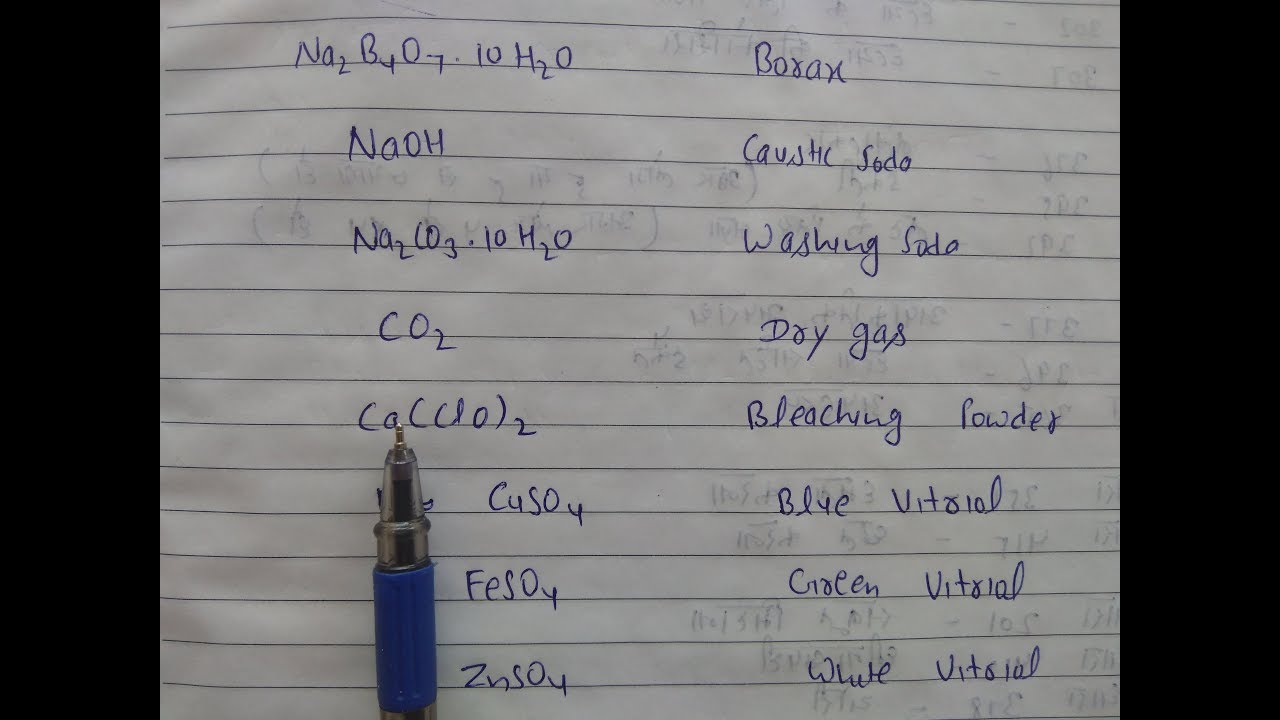 Na2B4O7·10H2O Borax
NaOH Caustic Soda
Na2CO3·10H2O Washing Soda
CO2 Dry gas
Ca(ClO)2 Bleaching Powder
CuSO4 Blue Vitrial
FeSO4 Green Vitrial
ZnSO4 White Vitrial